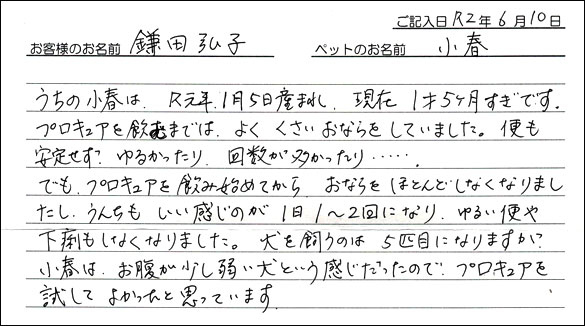 ご記入日 R2年 6月 10日
お客様のお名前 鎌田弘子 ペットのお名前 小春
うちの小春は、R元年、1月5日産まれ、現在 1才5ヶ月すぎです。
プロキュアを飲むまでは、よく くさいおならをしていました。便も
安定せず、ゆるかったり、回数が多かったり……。
でも、プロキュアを飲み始めてから、おならをほとんどしなくなりまし
たし、うんちも いい感じのが 1日 1〜2回になり、ゆるい便や
下痢もしなくなりました。犬を飼うのは 5匹目になりますが、
小春は、お腹が少し弱い犬という感じだったので、プロキュアを
試して よかったと思っています。